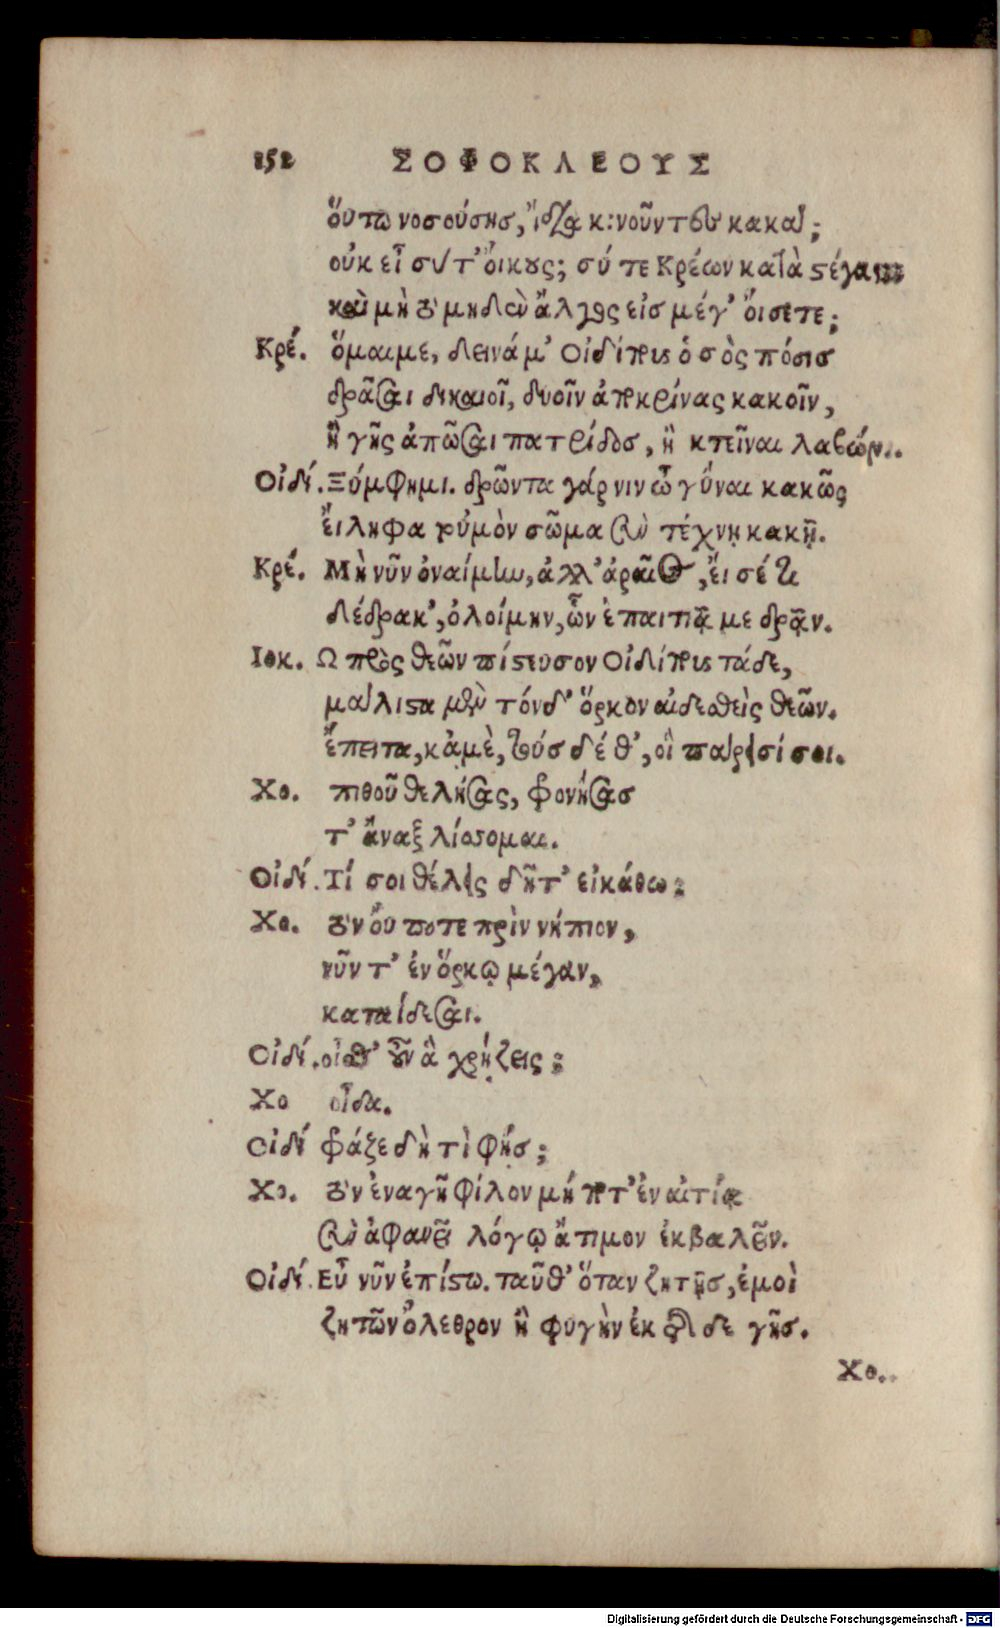 252 ΣΟΦΟΚΛΕΟΥΣ
ὅυτω νοσούσης, ἴδια κινοῦντες κακά;
οὐκ εἶ σύ τ' ὄικους; σύ τε Κρέων κατὰ στέγας
καὶ μὴ τὸ μηδὲν ἄλγος εἰς μέγ' ὄισετε;
Κρέ. ὅμαιμε, δεινά μ' Οἰδίπους ὁ σὸς πόσις
δρᾶσαι δικαιοῖ, δυοῖν ἀποκρίνας κακοῖν,
ἢ γῆς ἀπῶσαι πατρίδος, ἢ κτεῖναι λαβών.
Οἰδί. Ξύμφημι. δρῶντα γάρ νιν ὦ γύναι κακῶς
ἔιληφα τοὐμὸν σῶμα σὺν τέχνῃ κακῇ.
Κρέ. Μὴ νῦν ὀναίμην, ἀλλ' ἀραῖος, ἔι σέ τι
δέδρακ', ὀλοίμην, ὧν ἐπαιτιᾷ με δρᾷν.
Ιοκ. Ω πρὸς θεῶν πίστευσον Οἰδίπους τάδε,
μάλιστα μὲν τόνδ' ὅρκον αἰδεσθεὶς θεῶν.
ἔπειτα, κἀμὲ, τούσδέ θ', οἳ πάρεισί σοι.
Χο. πιθοῦ θελήσας, φρονήσας
τ' ἄναξ λίσσομαι.
Οἰδί. Τί σοι θέλεις δῆτ' εἰκάθω;
Χο. τὸν ὄυ ποτε πρὶν νήπιον,
νῦν τ' ἐν ὅρκῳ μέγαν,
καταίδεσαι.
Οἰδί. οἶσθ' οὖν ἃ χρῄζεις;
Χο οἶδα.
Οἰδί φράζε δὴ τὶ φῄς;
Χο. τὸν ἐναγῆ φίλον μήποτ' ἐν αἰτίᾳ
σὺν ἀφανεῖ λόγῳ ἄτιμον ἐκβαλεῖν.
Οἰδί. Εὖ νῦν ἐπίστω. ταῦθ' ὅταν ζητῇς, ἐμοὶ
ζητῶν ὄλεθρον ἢ φυγὴν ἐκ τῆσδε γῆς.
Χο.
Digitalisierung gefördert durch die Deutsche Forschungsgemeinschaft - DFG